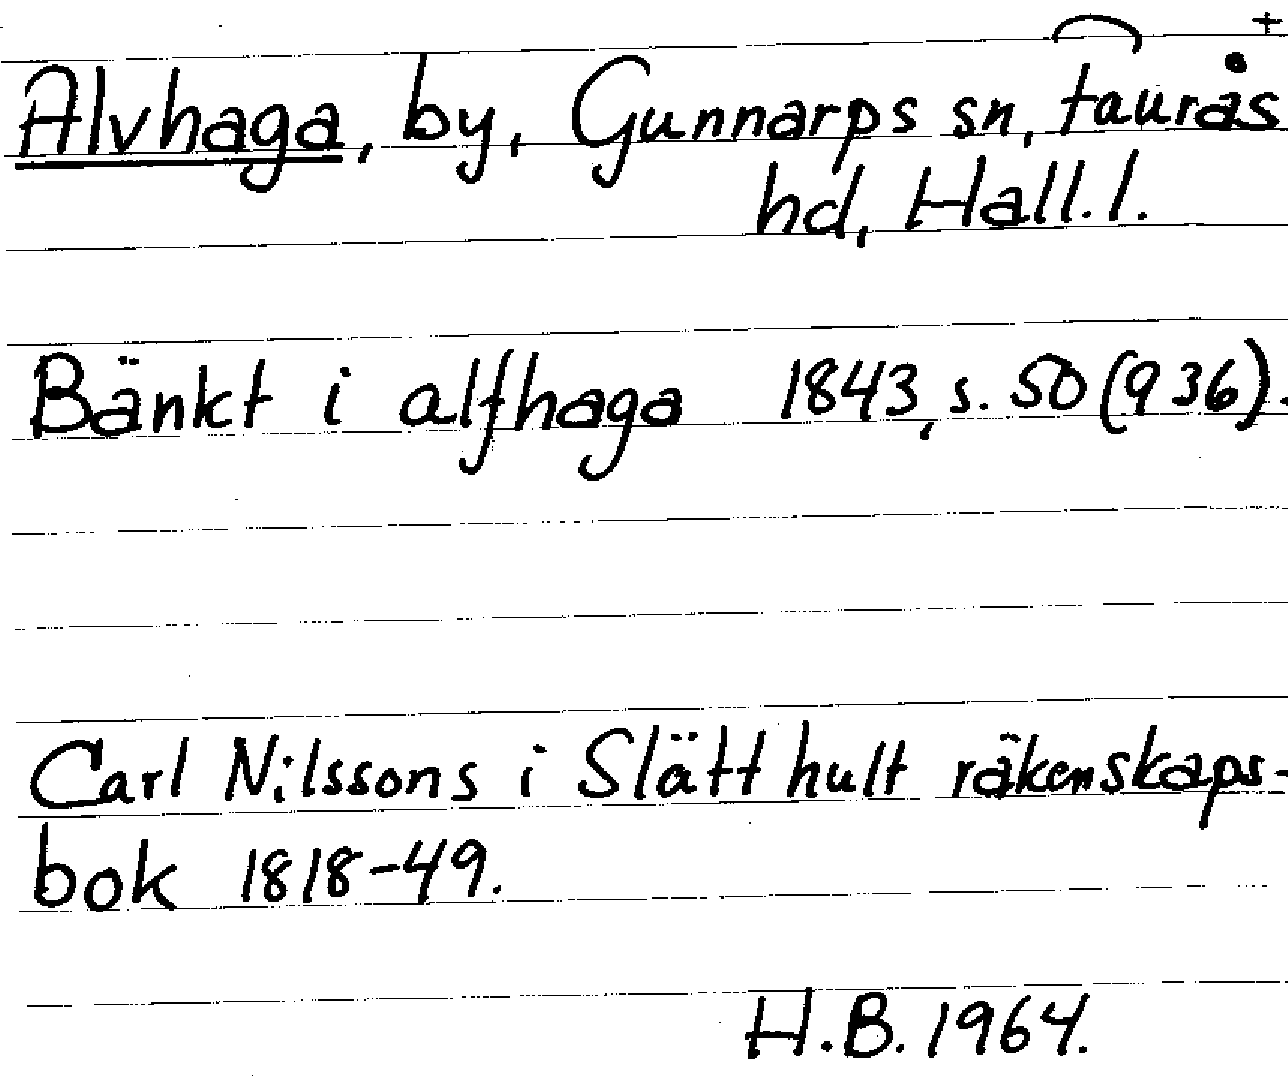 +
Alvhaga, by, Gunnarps sn, faurås
hd, Hall. l.
Bänkt i alfhaga 1843, s. 50 (936).
Carl Nilssons i Slätthult räkenskaps-
bok 1818-49.
H.B. 1964.